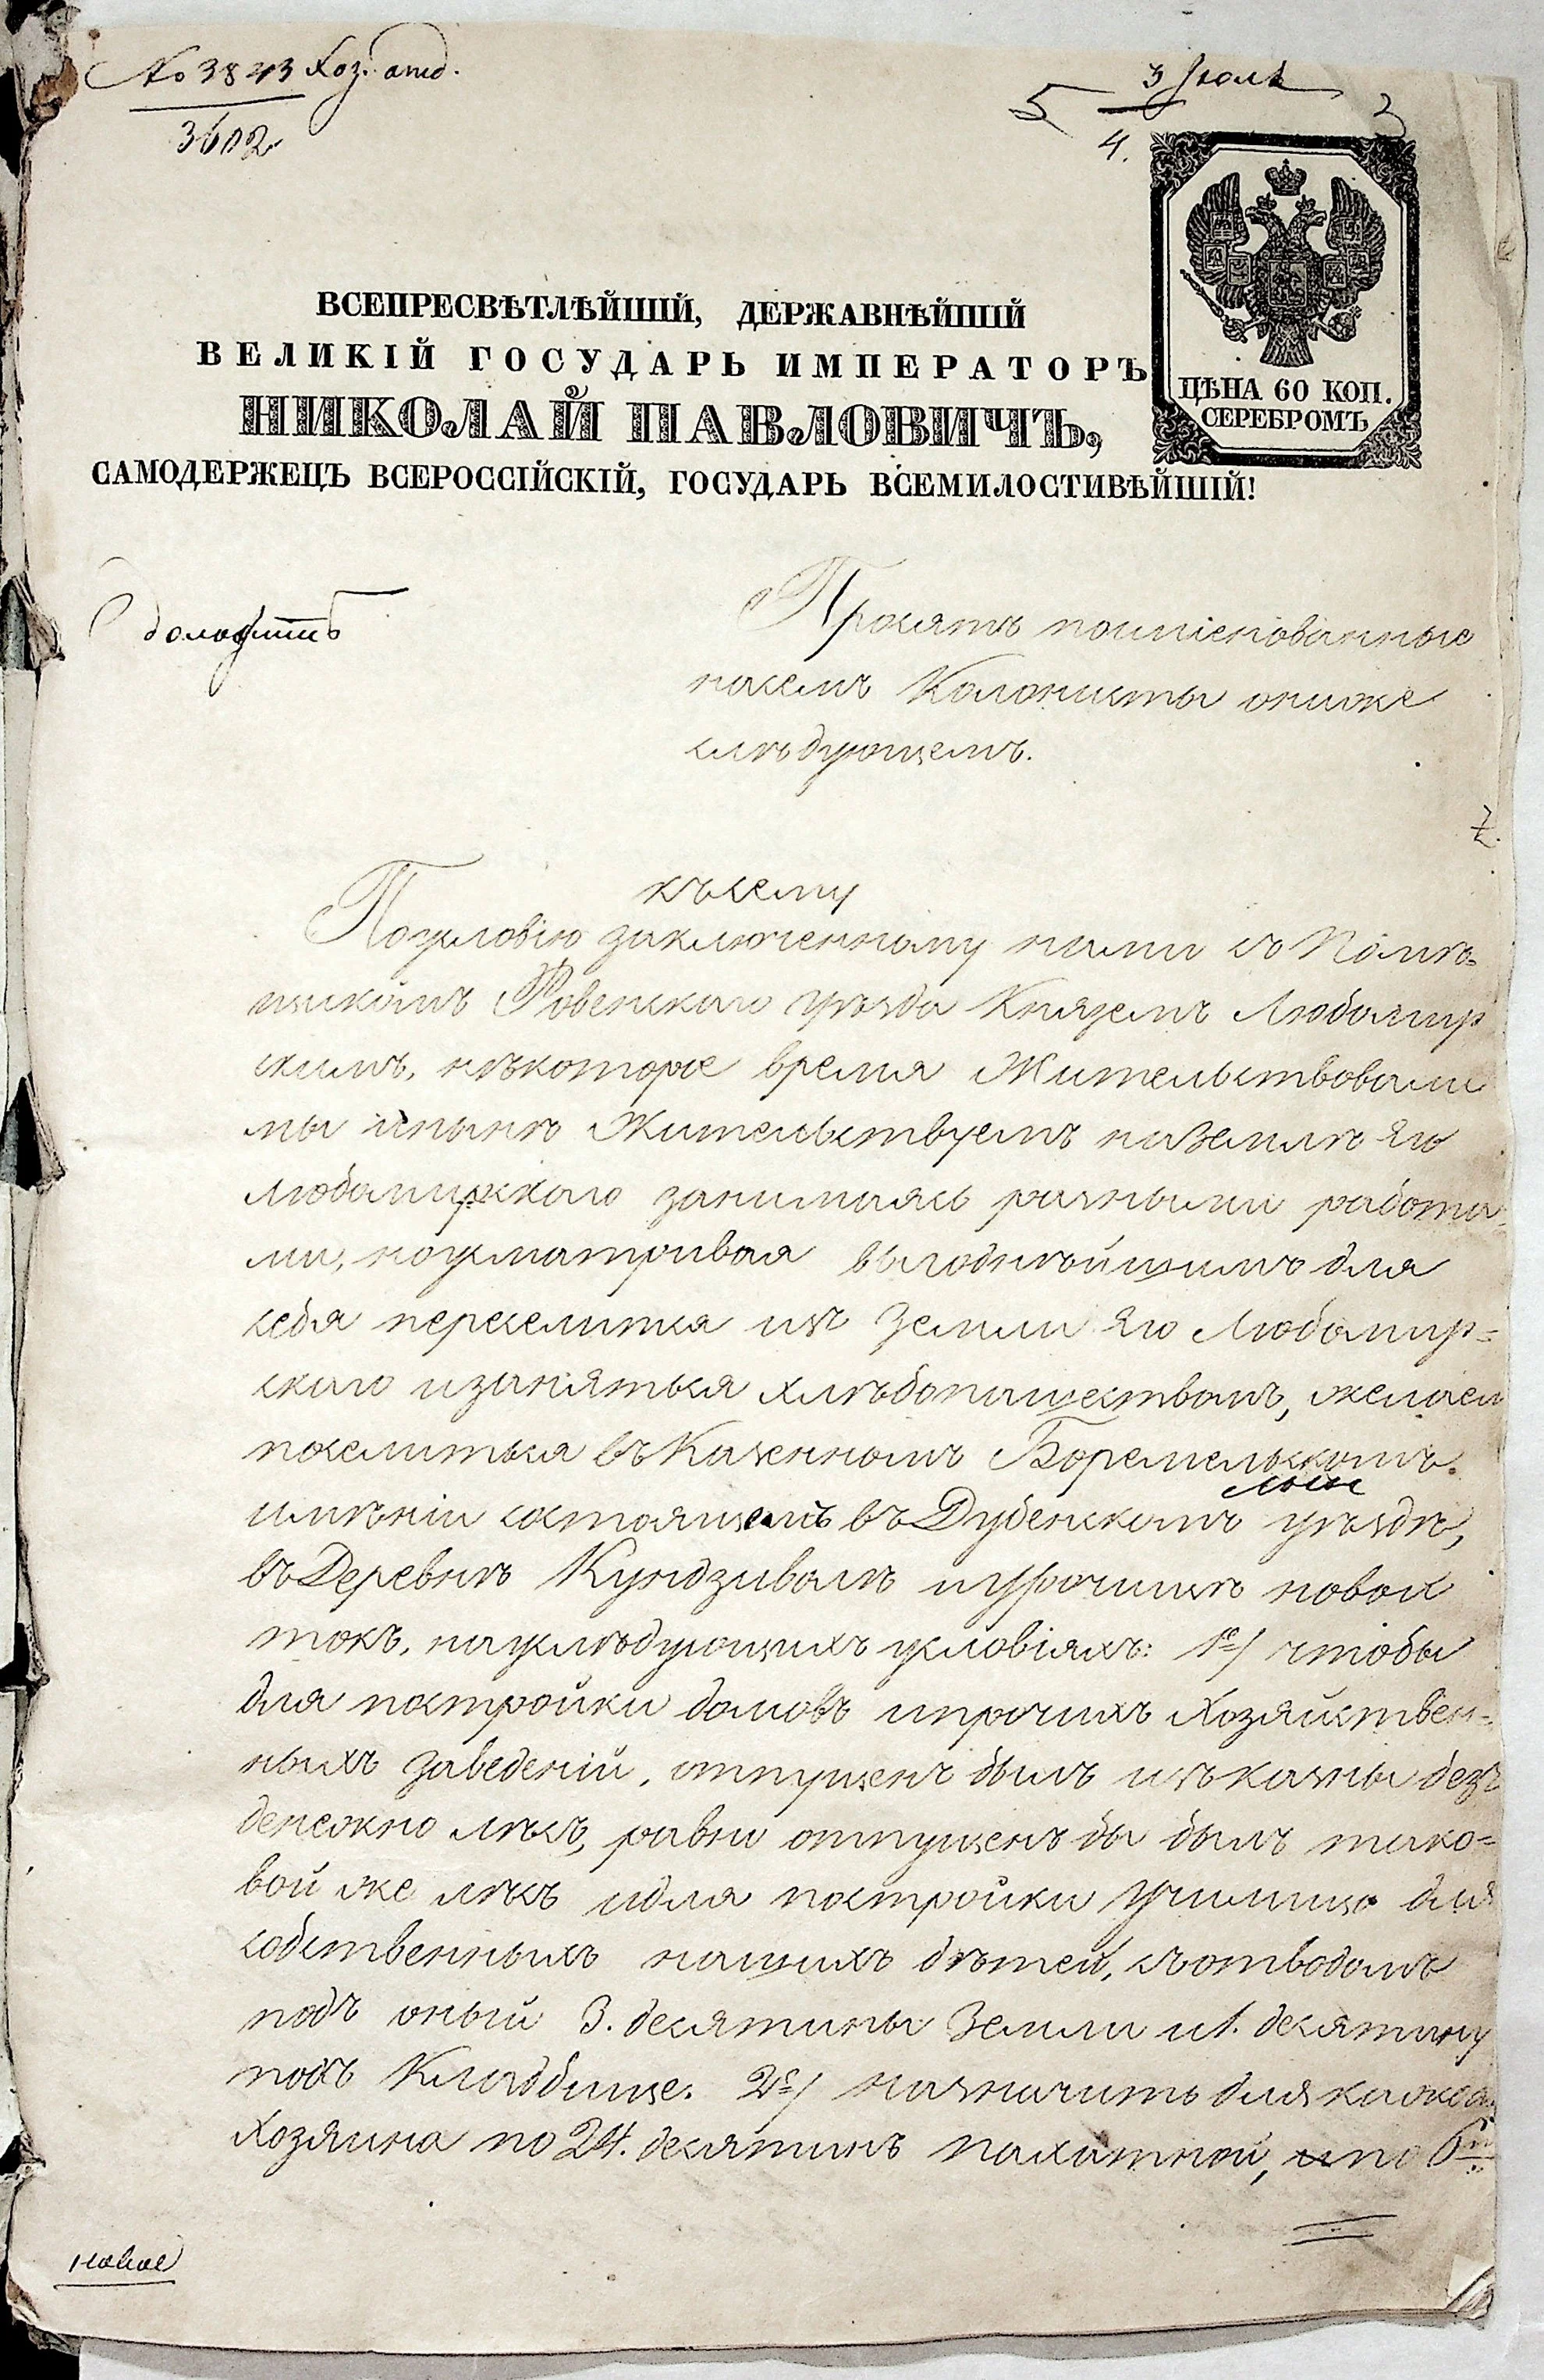 № 3843 Хоз. отд.
3602
3 Іюля
5
4.
ЦѢНА 60 КОП.
СЕРЕБРОМЪ
ВСЕПРЕСВѢТЛѢЙШІЙ, ДЕРЖАВНѢЙШІЙ
ВЕЛИКІЙ ГОСУДАРЬ ИМПЕРАТОРЪ
НИКОЛАЙ ПАВЛОВИЧЪ,
САМОДЕРЖЕЦЪ ВСЕРОССІЙСКІЙ, ГОСУДАРЬ ВСЕМИЛОСТИВѢЙШІЙ!
доложить
Просятъ поимѣнованные
насемъ Колонисты ониже
слѣдующемъ.
късему
Поусловію заключенному нами съ Помѣ-
щикомъ Ровенскаго уѣзда Княземъ Любомир
скимъ, нѣкоторое время Жительствовали
мы инынѣ Жительствуемъ наземлѣ Его
Любомирскаго занимаясь разными работа-
ми, ноусматривая выгоднѣйшимъ для
себя переселитса изъ Земли Его Любомир-
скаго изаняться хлѣбопашествомъ, желаем
поселиться въ Казенномъ Боремельскомъ
имѣніи состоящемъ въ Дубенскомъ уѣздѣ,
въ Деревнѣ Кундзиволѣ иурочищѣ новой
токъ, науслѣдующихъ условіяхъ: 1е/ чтобы
для постройки домовъ ипрочихъ Хозяйствен-
ныхъ заведеній, отпущенъ былъ изъ казны без
денежно лѣсъ, равно отпущенъ бы былъ тако-
вой же лѣсъ идля постройки Училищо для
собственныхъ нашихъ дѣтей, съотводомъ
подъ оный 3. десятины Земли и 1. десятину
подъ Кладбище. 2е/ назначить для каждо
Хозяина по 24. десятинъ пахатной, ипо 6ти
новое